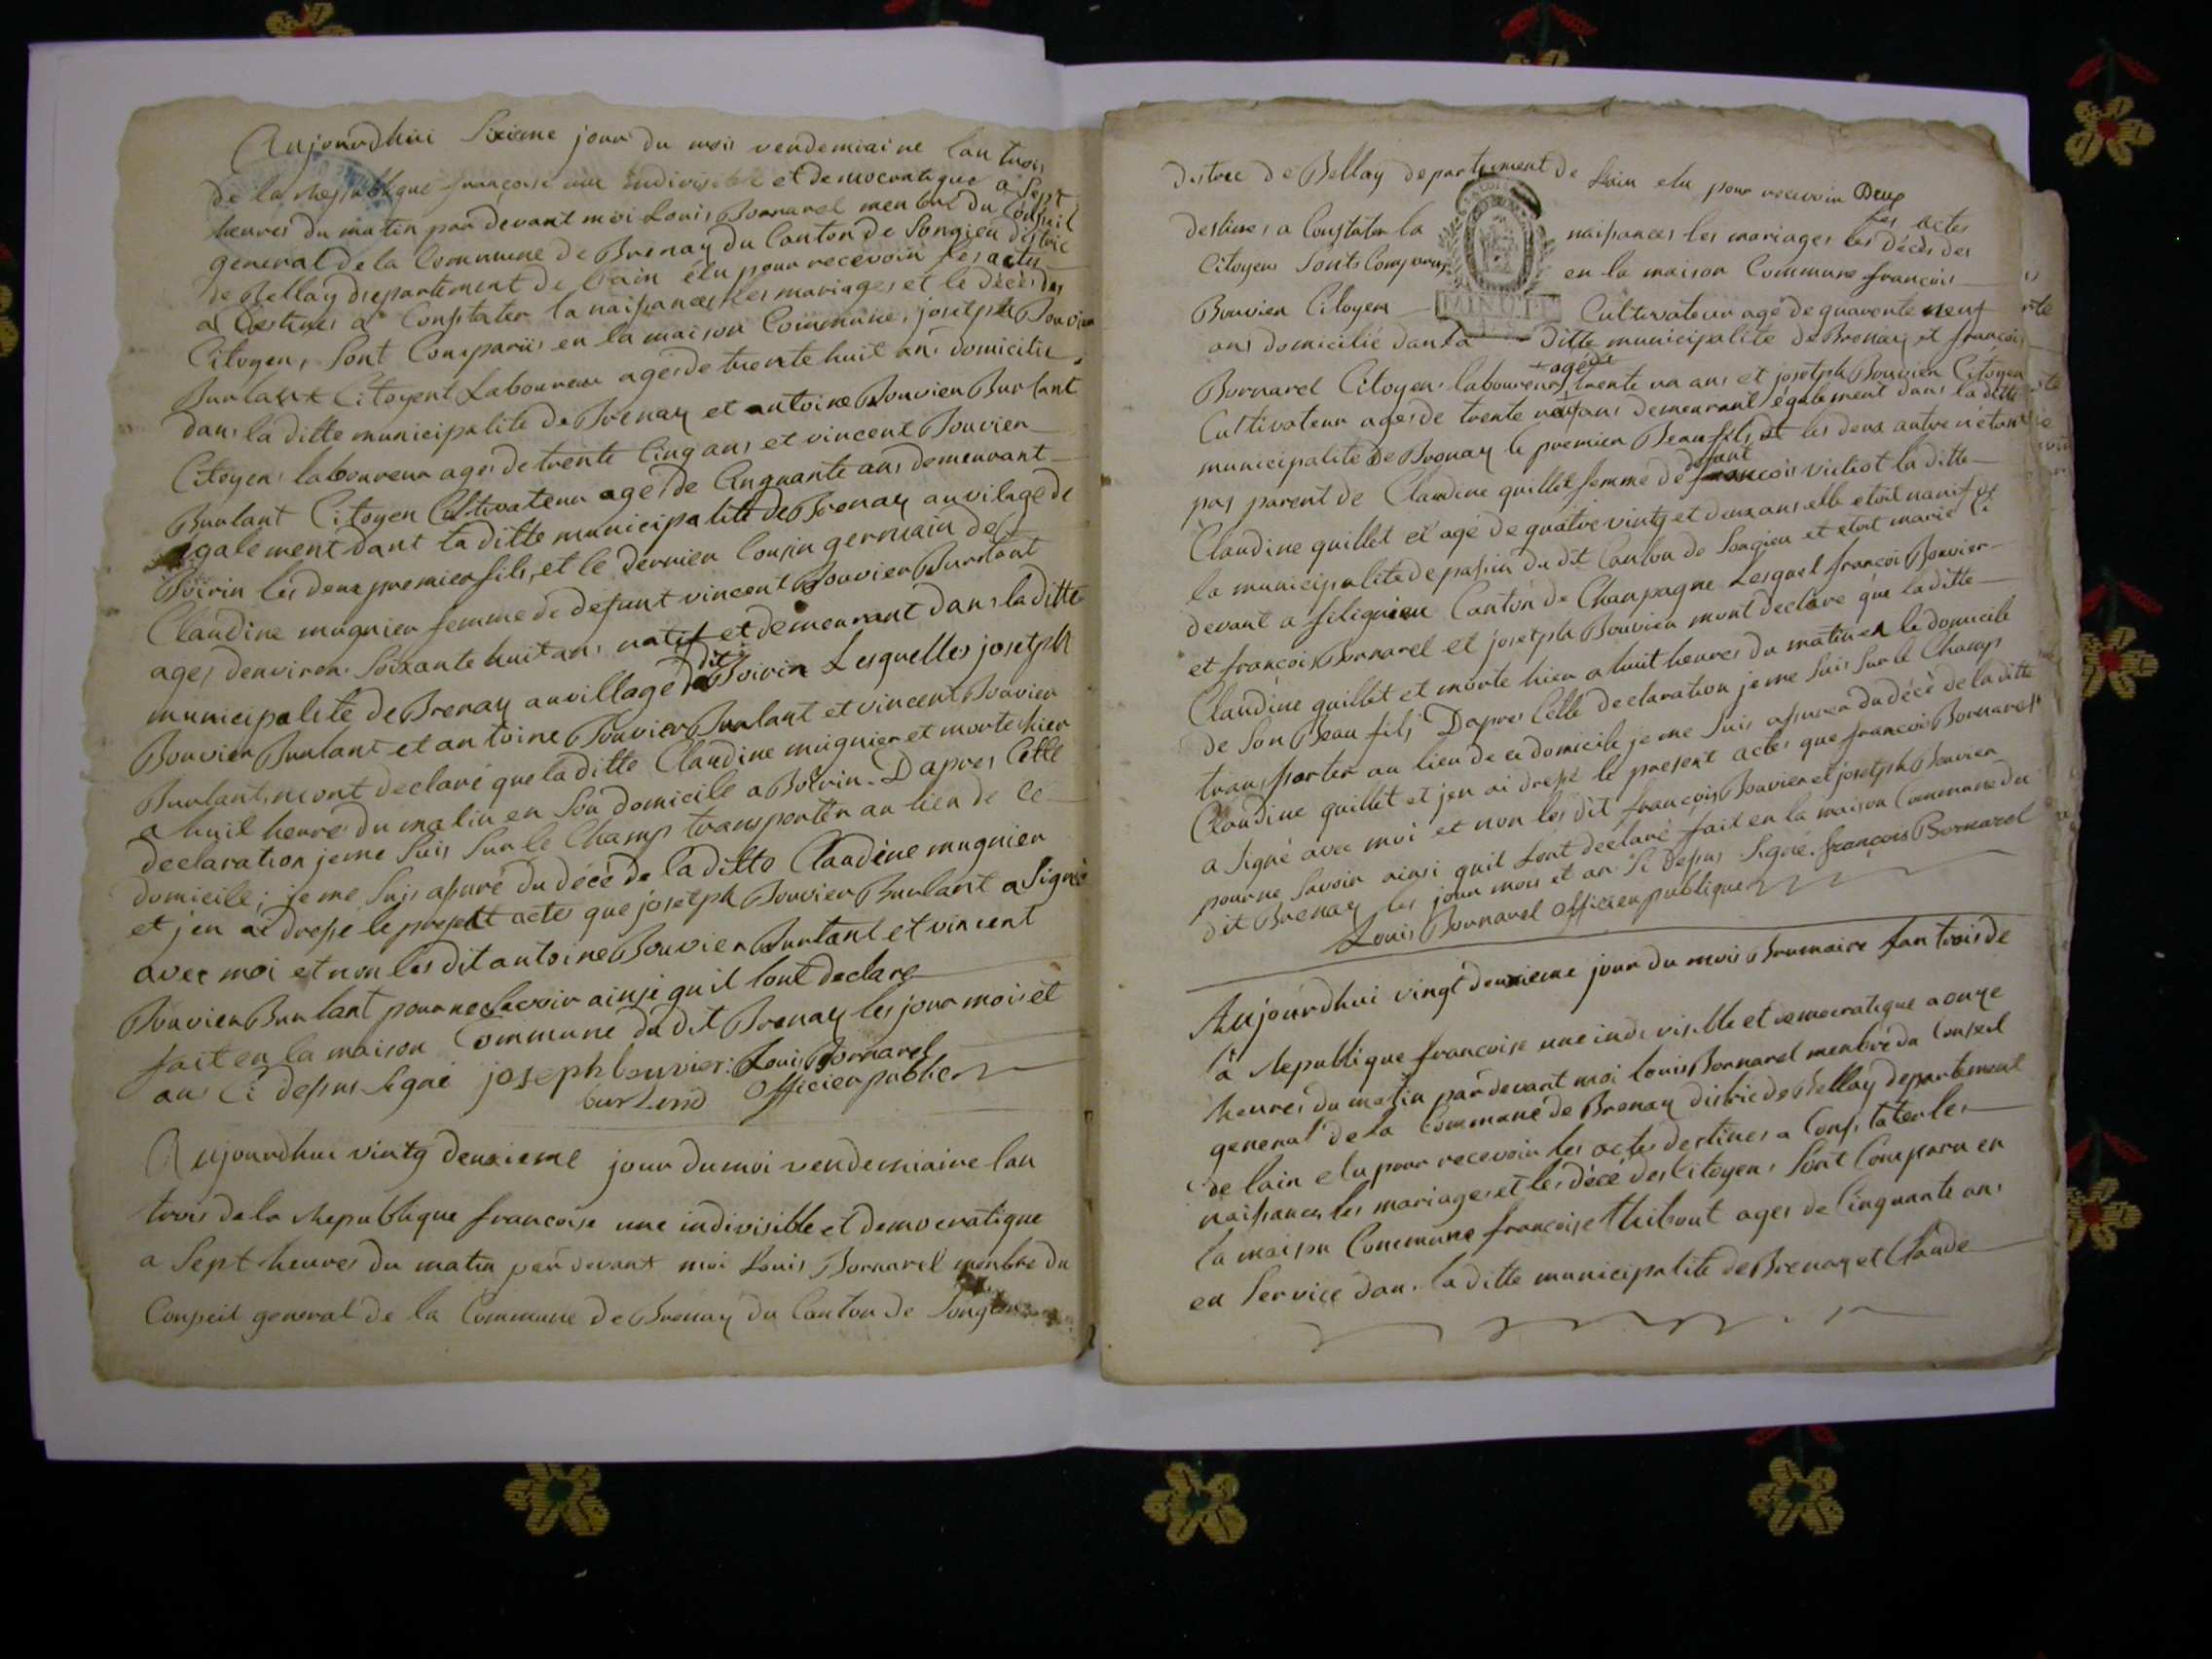 Aujourdhui Sixieme jour du mois vendemiaire lan trois
de la Republique françoise une indivisible et democratique a Sept
heures du matin par devant moi Louis Bornarel menbre du Conseil
general de la Commune de Brenay du Canton de Songieu distric
de Bellay departement de lain élu pour recevoir les actes
a destines a Constater la naissances les mariages et le décès des
Citoyens, sont Comparüs en la maison Commune, josetph Bouvier
Burlant Citoyent Laboureur ages de trente huit ans domicilie
dans la ditte municipalite de Brenay et antoine Bouvier Burlant
Citoyens laboureur ages de trente Cinq ans et vincent Bouvier
Burlant Citoyen Cultivateur ages de Cinquante ans demeurant
egalement dant la ditte municipalité de Brenay au vilage de
Boirin les deux premier fils, et le dernier Cousin germain de
Claudine mugnier femme de defunt vincent Bouvier Burlant
ages denviron Soixante huit ans natif et demeurant dans la ditte
municipalité de Brenay au village dit Boirin Lesquelles josetph
Bouvier Burlant et antoine Bouvier Burlant et vincent Bouvier
Burlant, mont declaré que la ditte Claudine mugnier et morte hier
a huit heures du matin en Son domicile a Boirin. Dapres Cette
declaration je me Suis Sur le Champ transporter au lieu de ce
domicile; je me Suis assuré du décé de la ditto Claudène mugnier
et jen ai dressé le present actes que josetph Bouvier Burlant a Signé
avec moi et non les dit antoine Bouvier Burlant et vincent
Bouvier Burlant pour ne Savoir ainsi quil lont declare
fait en la maison Commune du dit Brenay les jour mois et
an Ci dessus Signé joseph bouvier: Louis Bornarel
burland Officier public
Aujourdhui vintg deuxieme jour du moi vendemiaire lan
trois de la Republique françoise une indivisible et democratique
a Sept heures du matin par devant moi Louis Bornarel menbre du
Conseil general de la Commune de Brenay du Canton de Songieu
distric de Bellay departement de Lain elu pour recevoir Deux
les actes
destines a Constater la naissances les mariages les décès des
Citoyens Sonts Comparus en la maison Commune françois
MINUTE
Bouvier Citoyen Cultivateur age de quarente neuf
ans domicilié dans la ditte municipalite de Brenay et françois
+ agés de
Bornarel Citoyens laboureur, trente un ans et josetph Bouvier Citoyen
Cultivateur ages de trente neuf ans demeurant également dans la ditte
municipalité de Brenay le premier Beau fils, et les deux autre nétant
pas parent de Claudine quillet femme de defunt françois violiot la ditte
Claudine quillet et agé de quatre vintg et deux ans elle etoit nanif de
la municipalité de passin du dit Canton de Songieu et etoit marié Ci
devant a filignieu Canton de Champagne Lesquel françoi Bouvier
et françois Bornarel et josetph Bouvier mont declaré que la ditte
Claudine quillet et morte hier a huit heures du matin en le domicile
de Son Beau fils, Dapres Cette declaration je me Suis Sur le Champ
transporter au lieu de ce domicile je me Suis assurer du décè de la ditte
Claudine quillet et jen ai dressé le present actes que françois Bornarel
a Signé avec moi et non les dit françois Bouvier et josetph Bouvier
pour ne Savoir ainsi quil Lont declaré fait en la maison Commune du
dit Brenay les jour mois et an Si Dessus Signé. françois Bornarel
Louis Bornarel Officier publique
Aujourdhui vingt deuxieme jour du mois Brumaire lan trois de
la Republique françoise une indivisible et democratique a onze
heures du matin par devant moi louis Bornarel menbre du Conseil
general de la Commune de Brenay distric de Bellay departement
de lain elu pour recevoir les actes destines a Constater les
naissances les mariages et les décé des Citoyens Sont Comparu en
la maison Commune françoise thibout ages de Cinquante ans
en Service dans la ditte municipalité de Brenay et Claude